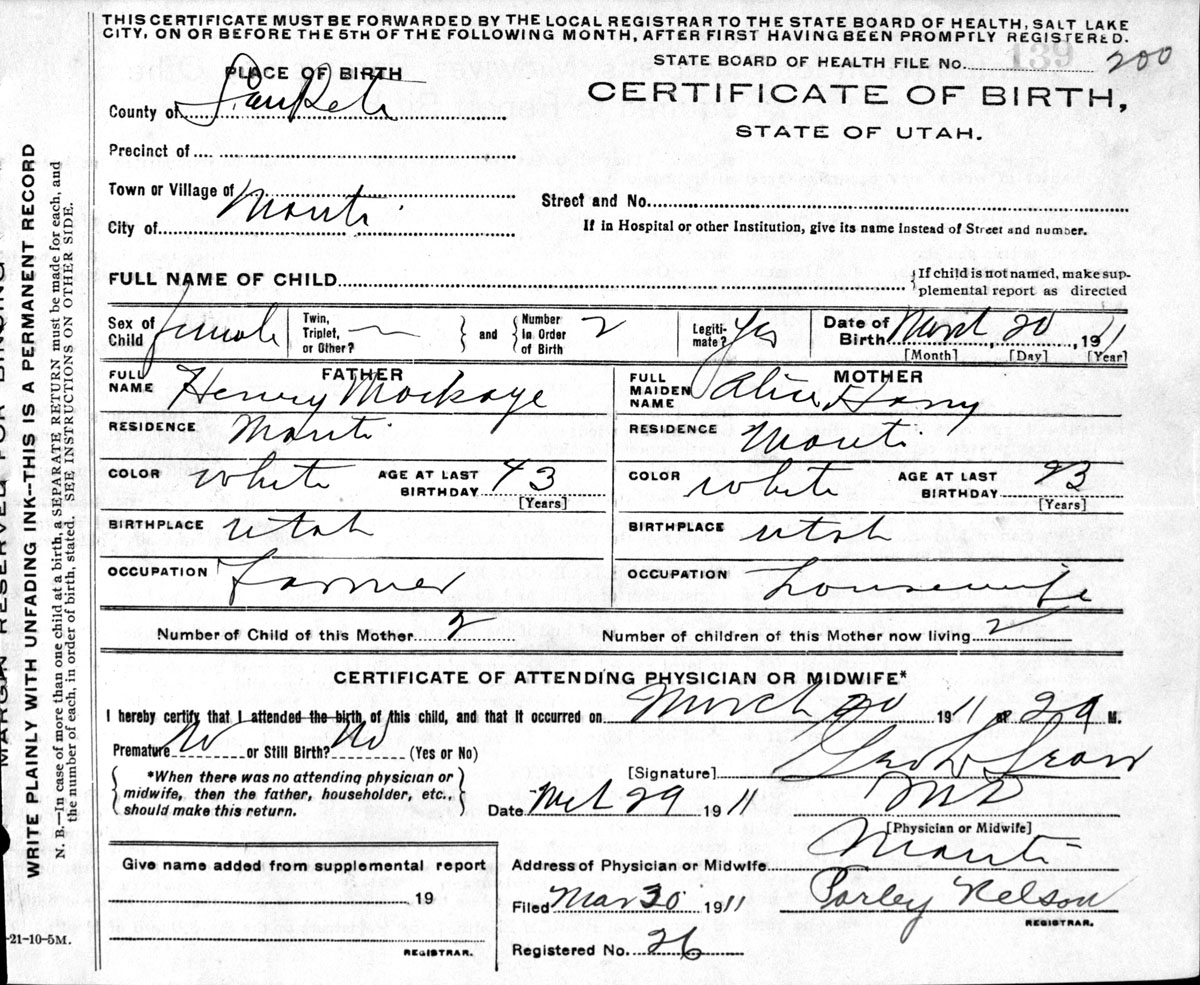 THIS CERTIFICATE MUST BE FORWARDED BY THE LOCAL REGISTRAR TO THE STATE BOARD OF HEALTH, SALT LAKE
CITY, ON OR BEFORE THE 5TH OF THE FOLLOWING MONTH, AFTER FIRST HAVING BEEN PROMPTLY REGISTERED.
139
STATE BOARD OF HEALTH FILE No. 200
PLACE OF BIRTH
CERTIFICATE OF BIRTH,
County of SanPete
STATE OF UTAH.
Precinct of
Town or Village of Manti
Street and No.
City of
If in Hospital or other Institution, give its name instead of Street and number.
FULL NAME OF CHILD
{If child is not named, make sup-
plemental report as directed
Sex of Child female
Twin, Triplet, or Other? —
and
Number in Order of Birth 2
Legiti-mate? Yes
Date of Birth March 20, 1911
[Month] [Day] [Year]
FATHER
FULL NAME Henry Mackaye
RESIDENCE Manti
COLOR white AGE AT LAST BIRTHDAY 43
[Years]
BIRTHPLACE Utah
OCCUPATION Farmer
MOTHER
FULL MAIDEN NAME Alice
RESIDENCE Manti
COLOR white AGE AT LAST BIRTHDAY
[Years]
BIRTHPLACE Utah
OCCUPATION housewife
Number of Child of this Mother 2 Number of children of this Mother now living 2
CERTIFICATE OF ATTENDING PHYSICIAN OR MIDWIFE*
I hereby certify that I attended the birth of this child, and that it occurred on March 20 1911 at M.
Premature No or Still Birth? No (Yes or No)
*When there was no attending physician or
midwife, then the father, householder, etc.,
should make this return.
[Signature]
Date Mch 29 1911 MD
[Physician or Midwife]
Give name added from supplemental report
19
REGISTRAR.
Address of Physician or Midwife Manti
Filed Mar 30 1911 Parley Nelson
REGISTRAR.
Registered No. 26
-21-10-5M.
MARGIN RESERVED FOR BINDING
WRITE PLAINLY WITH UNFADING INK--THIS IS A PERMANENT RECORD
N. B.—In case of more than one child at a birth, a SEPARATE RETURN must be made for each, and
the number of each, in order of birth, stated. SEE INSTRUCTIONS ON OTHER SIDE.